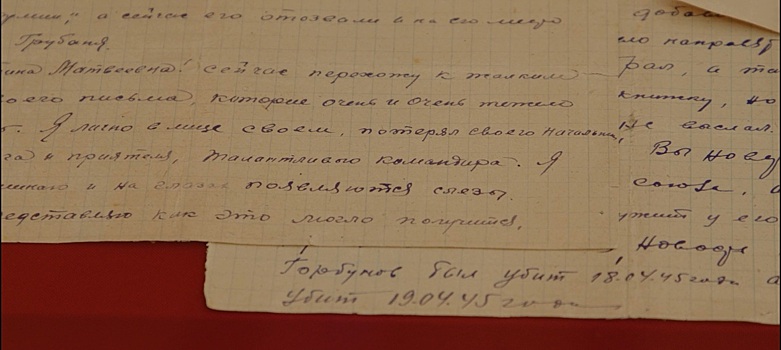 а сейчас его отозвали и на его место
Грубаня.
Матвеевна! Сейчас перехожу к тяжким
письма, которые очень и очень тяжело
Я лично в лице своем, потерял своего Начальни
и приятеля, талантливого командира. Я
и на глазах появляются слезы.
как это могло получится,
добав
направл
рал, а та
книжку, но
не выслал.
Вы Нову
союза, а
ужит у его
Новос
Горбунов был убит 18.04.45 года а
убит 19.04.45 года